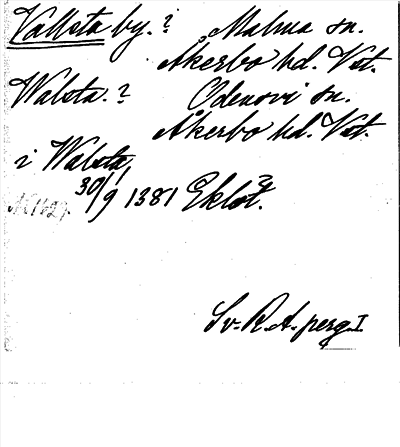 Vallsta by. ? Malma sn.
Åkerbo hd. Vst.
Walsta. ? Odensvi sn.
Åkerbo hd. Vst.
i Walsta,
30/9 1381 Eklöt.
Sv. R. A. perg. I